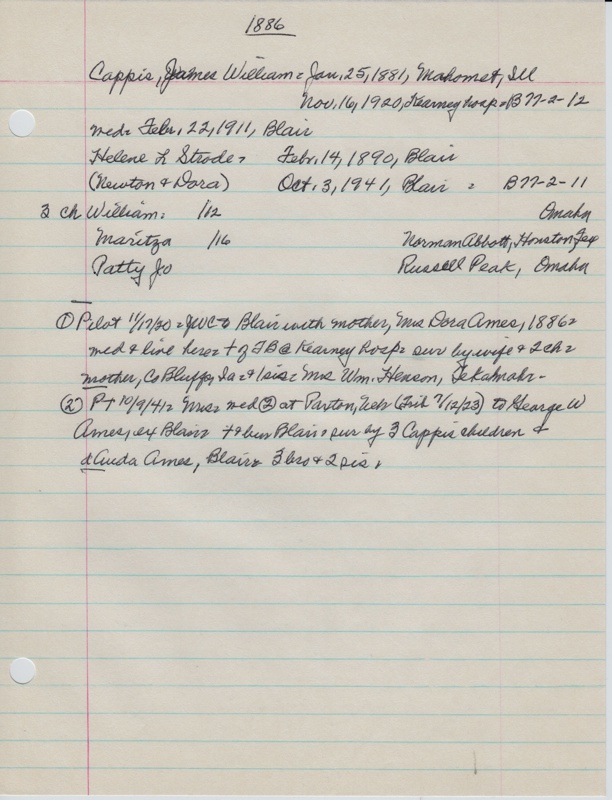 1886
Cappis, James William = Jan. 25, 1881, Mahomet, Ill
Nov. 16, 1920, Kearney hosp = B77-2-12
med = Febr. 22, 1911, Blair
Helene L Strode, Febr. 14, 1890, Blair
(Newton & Dora) Oct. 3, 1941, Blair = B77-2-11
3 ch William = 1/12 Omaha
Maritza 1/16 Norman Abbott, Houston, Tex
Patty Jo Russell Peak, Omaha
① Pilot 11/17/20 = JWC to Blair with mother, Mrs Dora Ames, 1886 =
med & live here = + of TB @ Kearney hosp = sur by wife & 2 ch =
mother, Co Bluffs, Ia = & 1 sis = Mrs Wm. Henson, Tekamah -
② PT 10/9/41 = Mrs = med ② at Paxton, Neb (Trib 7/12/23) to George W
Ames, ex Blair = + & bur Blair = sur by 3 Cappis children &
d Auda Ames, Blair = 3 bro & 2 sis.